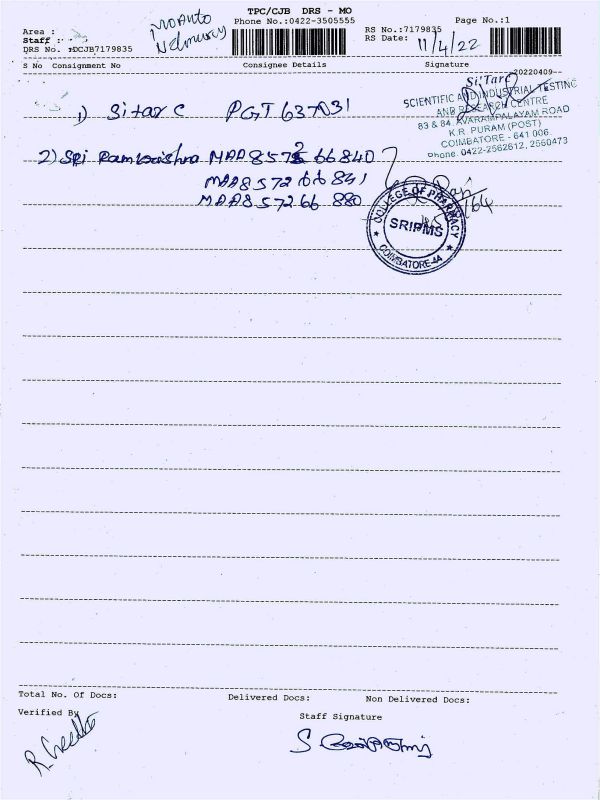 TPC/CJB DRS - MO
Phone No.:0422-3505555
Page No.:1
Area :
Staff :
DRS No. :DCJB7179835
RS No.:7179835
RS Date: 11/4/22
S No Consignment No Consignee Details Signature
20220409--
1) Sitar C PGT 637031
Si'Tarc
SCIENTIFIC AND INDUSTRIAL TESTING
AND RESEARCH CENTRE
83 & 84, AVARAMPALAYAM ROAD
K.R. PURAM (POST)
COIMBATORE - 641 006.
Phone: 0422-2562612, 2560473
2) Sri Ramkrishna MAA857266840
MAA857266841
MAA857266880
COLLEGE OF PHARMACY
SRIPMS
COIMBATORE-44
Total No. Of Docs: Delivered Docs: Non Delivered Docs:
Verified By Staff Signature